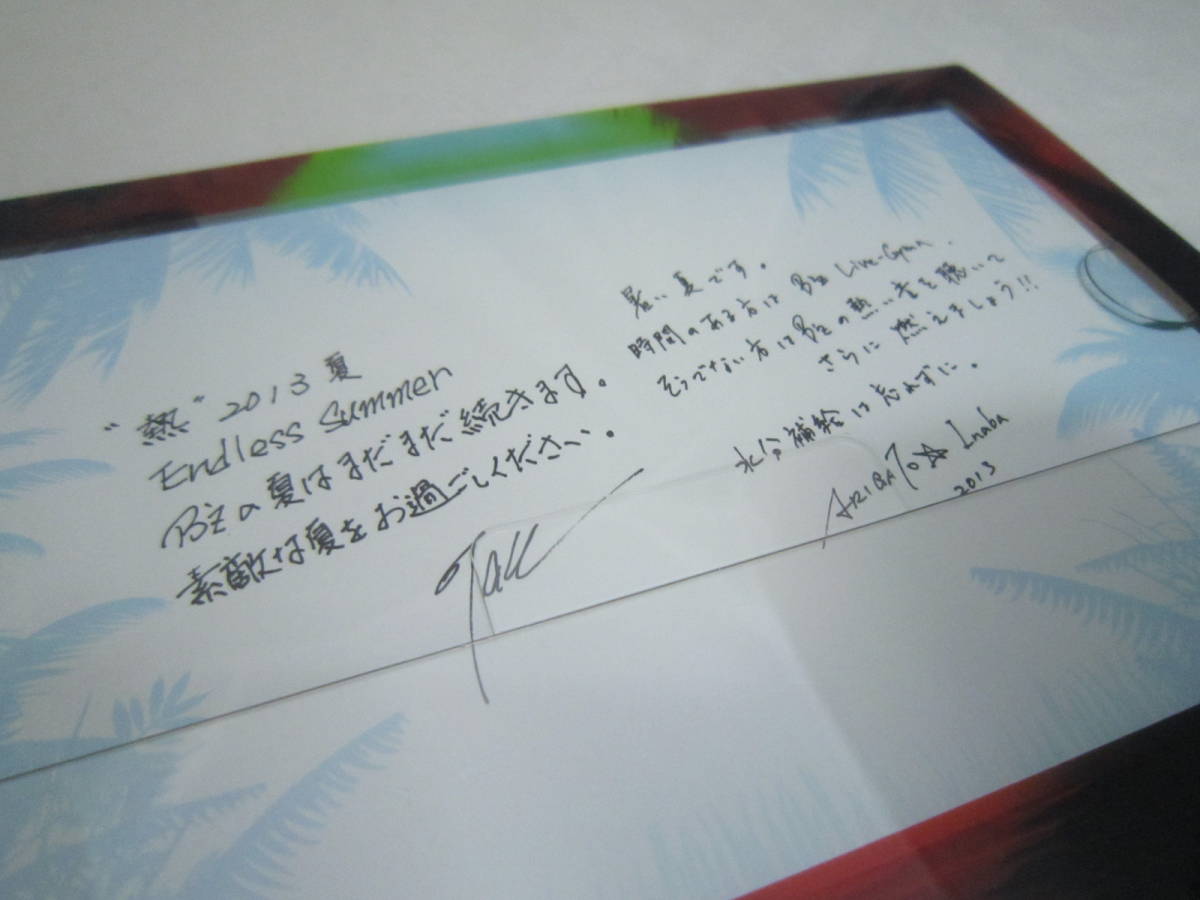 "熱" 2013 夏
Endless Summer
B'zの夏はまだまだ続きます。
素敵な夏をお過ごしください。
Tak
暑い夏です。
時間のある方は B'z Live-Gym、
そうでない方はB'zの熱い音を聴いて
さらに燃えましょう!!
水分補給は忘れずに。
ARIGATO☆ Inaba
2013